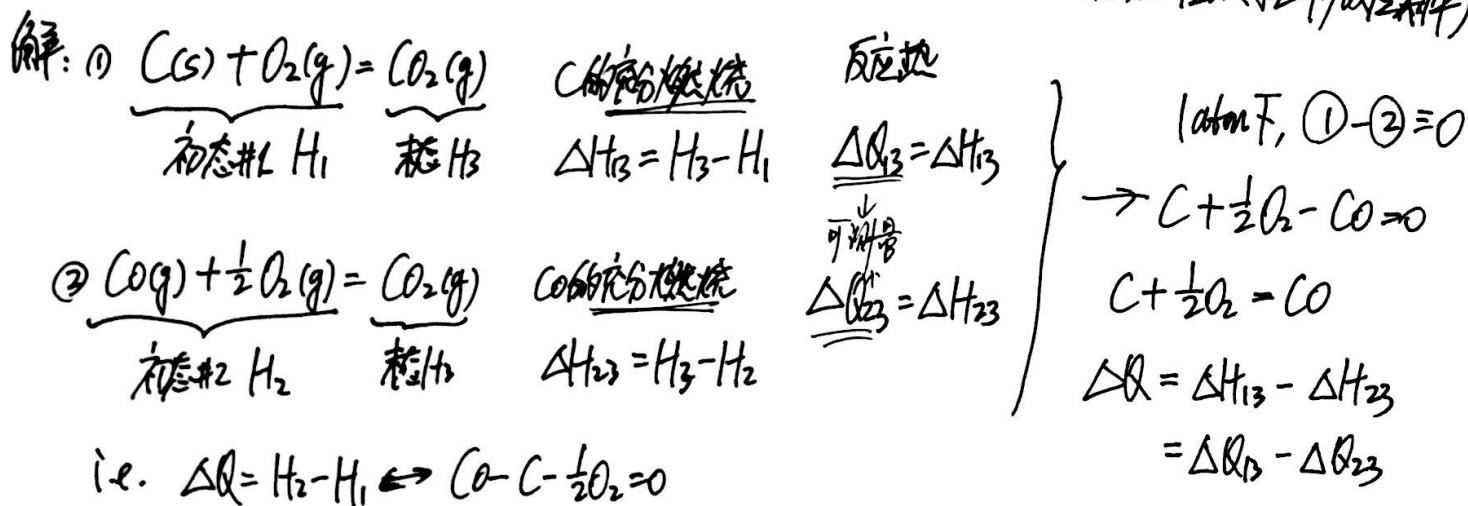 解: ① C(s) + O₂(g) = CO₂(g) C的充分燃烧 反应热
初态#1 H₁ 末态 H₃ ΔH₁₃ = H₃ - H₁ ΔQ₁₃ = ΔH₁₃
↓
可测量
② CO(g) + ½ O₂(g) = CO₂(g) CO的充分燃烧 ΔQ₂₃ = ΔH₂₃
初态#2 H₂ 末态H₃ ΔH₂₃ = H₃ - H₂
i.e. ΔQ = H₂ - H₁ ↔ CO - C - ½O₂ = 0
1atm下, ① - ② = 0
→ C + ½O₂ - CO = 0
C + ½O₂ = CO
ΔQ = ΔH₁₃ - ΔH₂₃
= ΔQ₁₃ - ΔQ₂₃